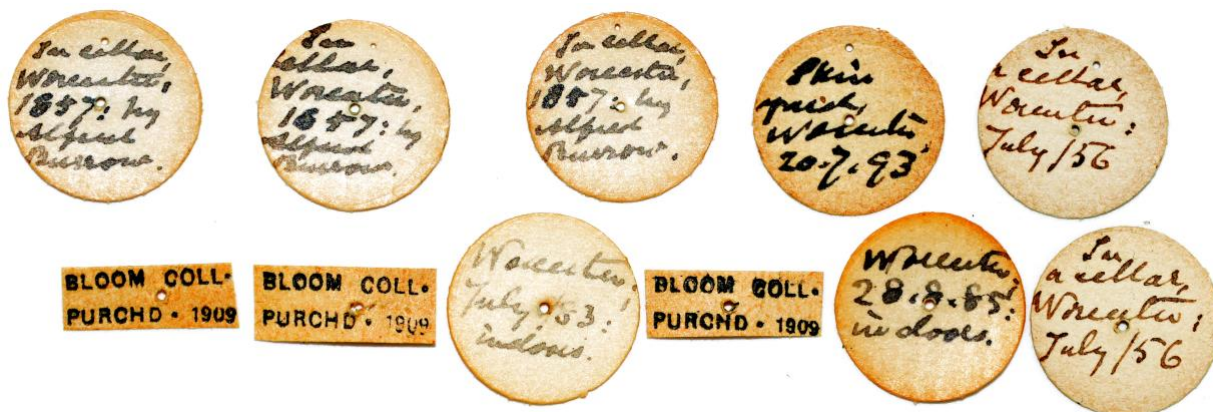 In cellar,
Worcester,
1857: by
Alfred
Burrow.
In
cellar,
Worcester,
1857: by
Alfred
Burrow.
In cellar,
Worcester,
1857: by
Alfred
Burrow.
Skin
Worcester
20.7.93
In
a cellar,
Worcester:
July/56
BLOOM COLL.
PURCHD. 1909
BLOOM COLL.
PURCHD. 1909
Worcester,
July/53:
indoors.
BLOOM COLL.
PURCHD. 1909
Worcester,
28.8.85:
indoors.
In
a cellar,
Worcester:
July/56